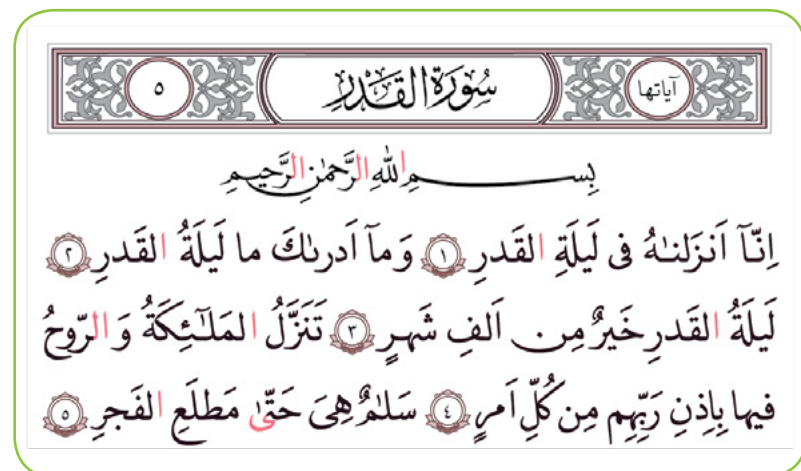 آیاتها سُورَةُ القَدْرِ ٥
بِسمِ اللّٰهِ الرَّحمٰنِ الرَّحیمِ
اِنّآ اَنزَلنٰهُ فی لَیلَةِ القَدرِ ١ وَ مآ اَدرىٰكَ ما لَیلَةُ القَدرِ ٢
لَیلَةُ القَدرِ خَیرٌ مِن اَلفِ شَهرٍ ٣ تَنَزَّلُ المَلٰٓئِكَةُ وَ الرّوحُ
فیها بِاِذنِ رَبِّهِم مِن كُلِّ اَمرٍ ٤ سَلٰمٌ هِیَ حَتّیٰ مَطلَعِ الفَجرِ ٥